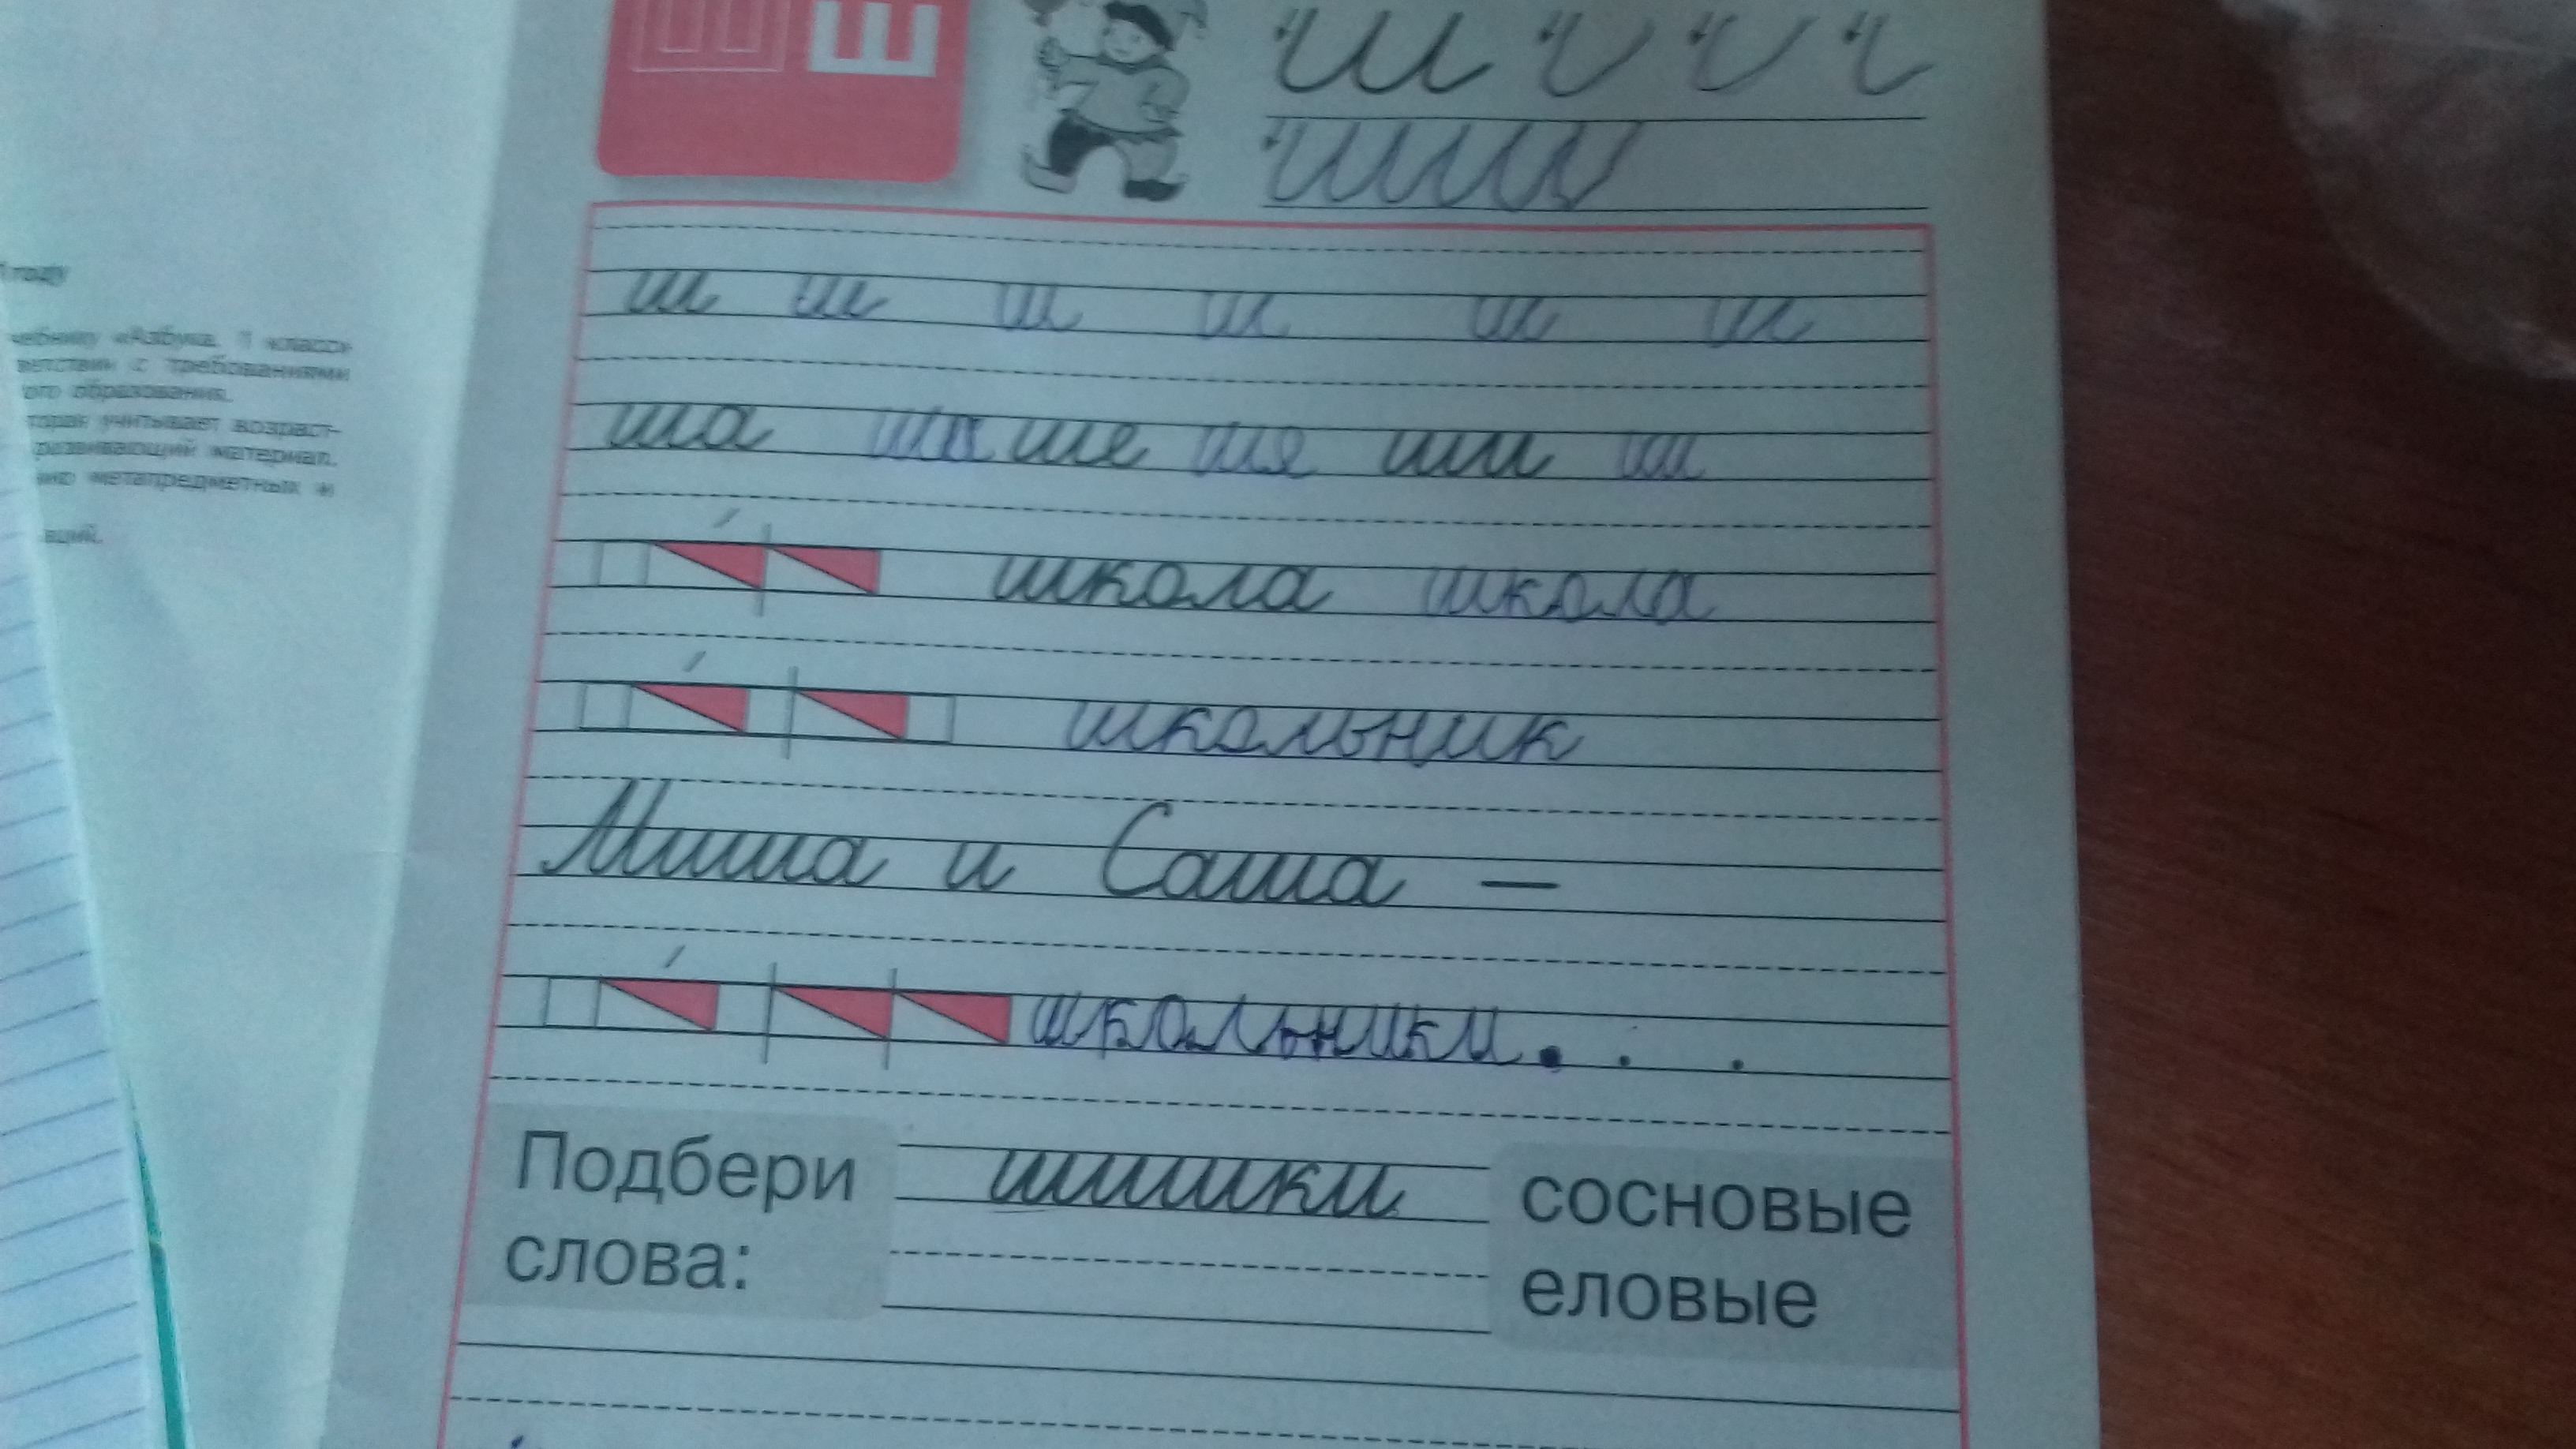 Ш
ш
ш ш ш ш ш ш
ша ша ше ше ши ши
школа школа
школьник
Миша и Саша —
школьники. . .
Подбери слова:
шишки
сосновые
еловые
году
«Азбука. 1 класс»
с требованиями
образования.
учитывает возраст-
развивающий материал.
метапредметных и